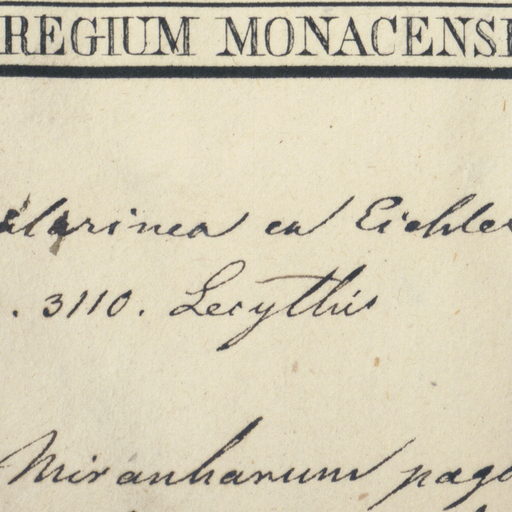 REGIUM MONACENS
ex Eichler
. 3110. Lecythis
Miranharum pago